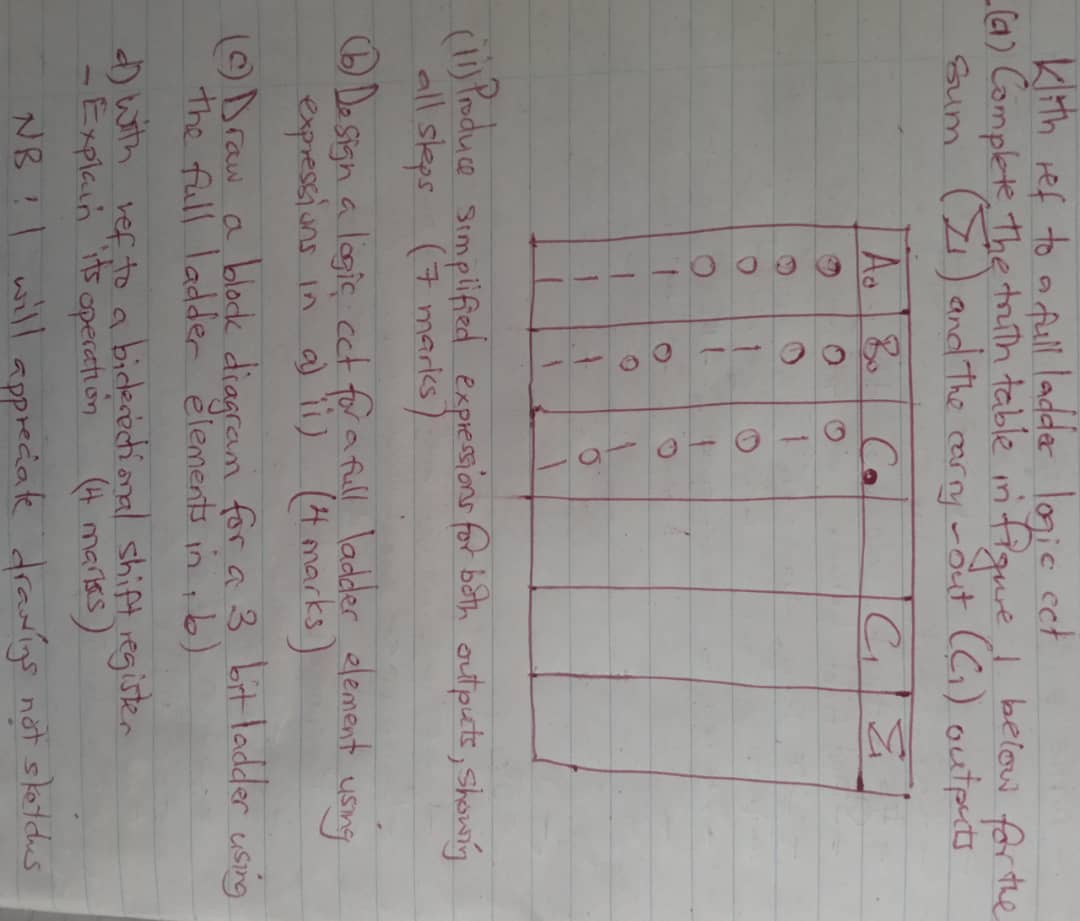 With ref to a full ladder logic cct
(a) Complete the truth table in figure 1 below for the
sum (Σ1) and the carry-out (C1) outputs
A0 B0 C0 C1 Σ1
0 0 0
0 0 1
0 1 0
0 1 1
1 0 0
1 0 1
1 1 0
1 1 1
(ii) Produce simplified expressions for both outputs, showing
all steps (7 marks)
(b) Design a logic cct for a full ladder element using
expressions in a) ii) (4 marks)
(c) Draw a block diagram for a 3 bit ladder using
the full ladder elements in, b)
d) With ref to a bidirectional shift register
- Explain its operation (4 marks)
NB: I will appreciate drawings not sketches